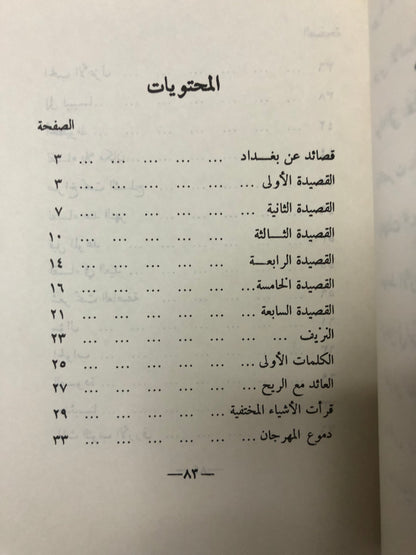 المحتويات
الصفحة
قصائد عن بغداد ... ... ... ... ٣
القصيدة الأولى ... ... ... ... ٣
القصيدة الثانية ... ... ... ... ٧
القصيدة الثالثة ... ... ... ... ١٠
القصيدة الرابعة ... ... ... ... ١٤
القصيدة الخامسة ... ... ... ... ١٦
القصيدة السابعة ... ... ... ... ٢١
النزيف ... ... ... ... ... ٢٣
الكلمات الأولى ... ... ... ... ٢٥
العائد مع الريح ... ... ... ... ٢٧
قرأت الأشياء المختفية ... ... ... ٢٩
دموع المهرجان ... ... ... ... ٣٣
—٨٣—